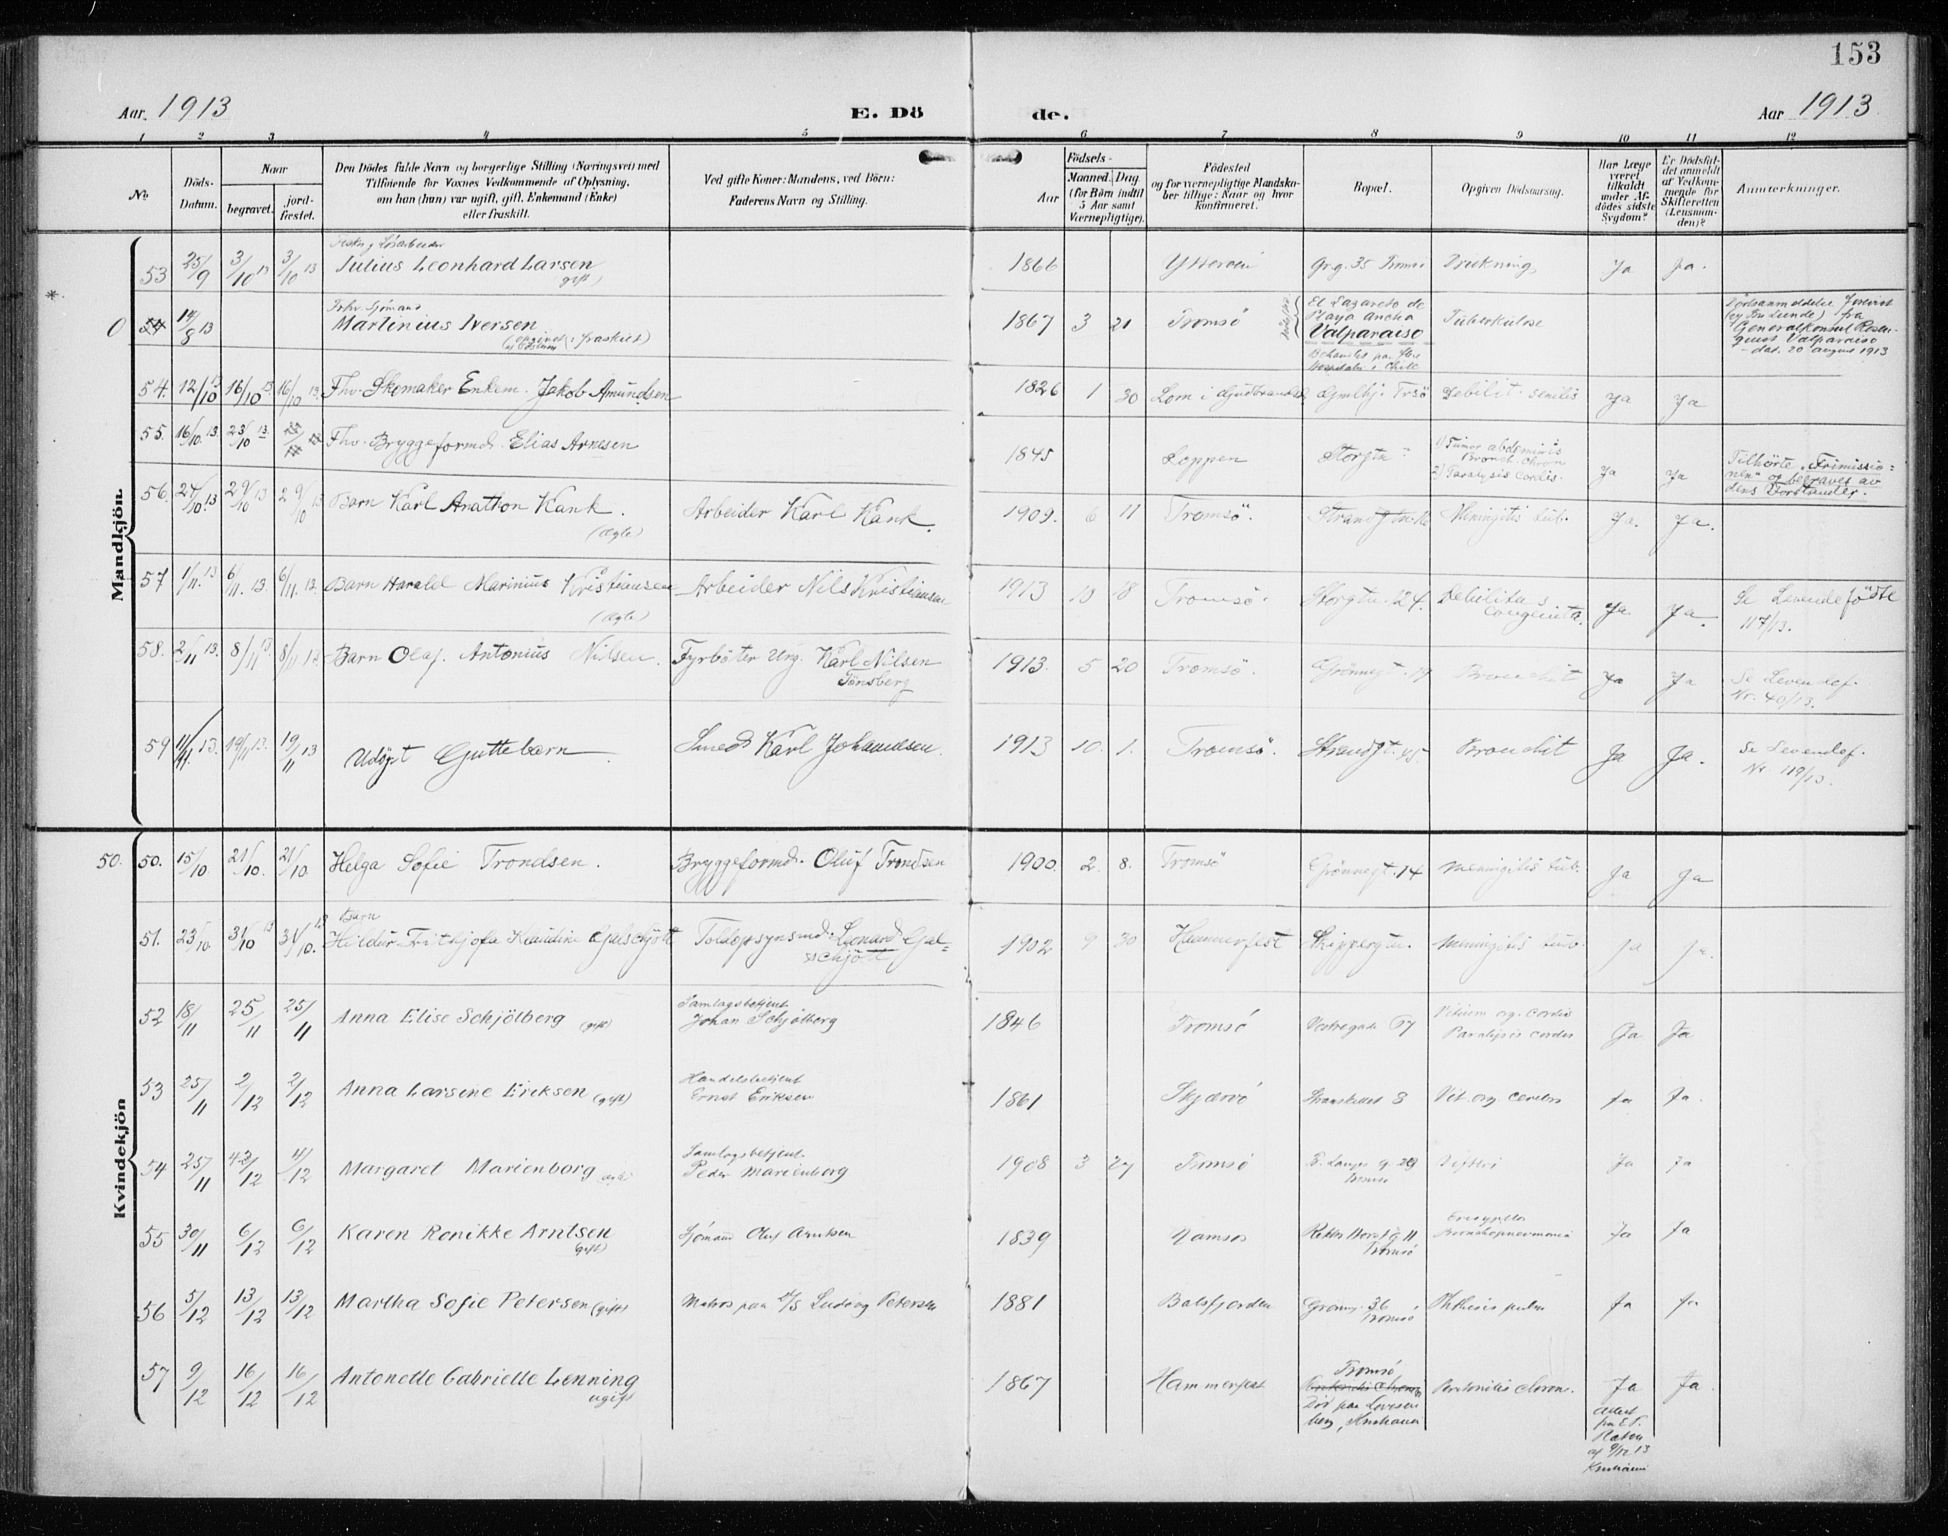 153
Aar 1913
E. Döde.
Aar 1913
1 2 3 4 5 6 7 8 9 10 11 12
No
Döds-
Datum.
Naar
begravet.
jord-
fæstet.
Den Dödes fulde Navn og borgerlige Stilling (Næringsvei) med
Tilföiende for Voxnes Vedkommende af Oplysning,
om han (hun) var ugift, gift, Enkemand (Enke)
eller fraskilt.
Ved gifte Koner: Mandens, ved Börn:
Faderens Navn og Stilling.
Födsels-
Aar
Maaned.
Dag
(for Börn indtil
5 Aar samt
Værnepligtige).
Födested
og for værnepligtige Mandska-
ber tillige: Naar og hvor
konfirmeret.
Bopæl.
Opgiven Dödsaarsag.
Har Læge
været
tilkaldt
under Af-
dödes sidste
Sygdom?
Er Dödsfal-
det anmeldt
af Vedkom-
mende for
Skifteretten
(Lensman-
den)?
Anmerkninger.
Mandkjön.
53 25/9 3/10 13 3/10 13 Julius Leonhard Larsen gift 1866 Grg. 35 Tromsö Ja Ja.
0 14/8 13 Fhv. Sjömand Martinius Iversen 1867 3 21 Tromsö El Lazareto de Playa Ancha Valparaiso Tuberkulose
Generalkonsul
Valparaiso
dat. 20 august 1913
54. 12/10 13 16/10 13. 16/10 13. Fhv. Skomaker Enkem. Jakob Amundsen 1826 1 30 Lom i Gudbrandsd. Debilit. senilis Ja Ja
55. 16/10 13. 23/10 13. Fhv. Bryggeformd. Elias Arnesen 1845 Loppen Storgtn 1) Tumor abdominis Bronch. chron 2) Paralysis cordis. Ja Ja Tilhörte "Frimissio-
nen" og begraves av
dens Forstander.
56. 24/10 13 29/10 13 29/10 13 Barn Karl Kank. (Ægte) Arbeider Karl Kank. 1909. 6 11 Tromsö. Meningitis tub. Ja. Ja.
57 1/11. 13 6/11. 13. 6/11. 13. Barn Harald Marinius Kristiansen (Ægte) Arbeider Nils Kristiansen 1913 10 18 Tromsö. Storgtn. 124. Debilitas congenita. Ja Ja. Se Levendefödte
117/13.
58. 2/11 13. 8/11 13. 8/11 13. Barn Olaf Antonius Nilsen. Fyrböter Ung. Karl Nilsen Tönsberg 1913. 5 20 Tromsö. Grönnegt. 19 Bronchit Ja Ja Se Levendef.
Nr. 40/13.
59 11/11 13. 19/11 13. 19/11 13 Udöpt Guttebarn. Smed Karl Johansen. 1913 10. 1. Tromsö. Strandgt. 45. Bronchit Ja Ja. Se Levendef.
Nr. 119/13.
Kvindekjön
50. 50. 15/10. 21/10. 21/10. Helga Sofie Trondsen. Bryggeformd. Oluf Trondsen 1900. 2. 8. Tromsö Grönnegt. 14 Meningitis tub. Ja Ja
51. 23/10. 31/10 13 31/10. 13 Barn Hildur Frithjofa Klaudine Gjelschjött Toldopsynsmd. Lenard Gjel-
schjött 1902 9 30 Hammerfest Skippergtn. Meningitis tub. Ja Ja.
52 18/11 25/11 25/11 Anna Elise Schjölberg (gift) Samlagsbetjent Johan Schjölberg 1846 Tromsö Vestregade 67 Vitium org. cordis Paralysis cordis Ja Ja
53 25/11 2/12 2/12 Anna Larsine Eriksen (gift) Handelsbetjent Ernst Eriksen 1861 Skjærvö Strandskillet 8 Vit. org. cordis Ja Ja.
54 25/11 4/12 4/12 Margaret Marienborg Samlagsbetjent Peder Marienborg 1908 3 27 Tromsö Tromsö Difteri Ja Ja
55 30/11 6/12 6/12 Karen Ronikke Arntsen (gift) Sjömand Oluf Arntsen 1839 Namsos Tromsö Bronchopneumonia Ja Ja
56 5/12 13/12 13/12 Martha Sofie Petersen (gift) Matros paa D/S Ludvig Petersen 1881 Balsfjorden Grönneg. 36 Tromsö Phthisis pulm Ja Ja
57 9/12 16/12 16/12 Antonette Gabrielle Lenning ugift 1867 Hammerfest Tromsö Död paa Lovisen-
berg, Kristiania chron. Ja Ja.
Attest
af 9/12 13
Kristiania